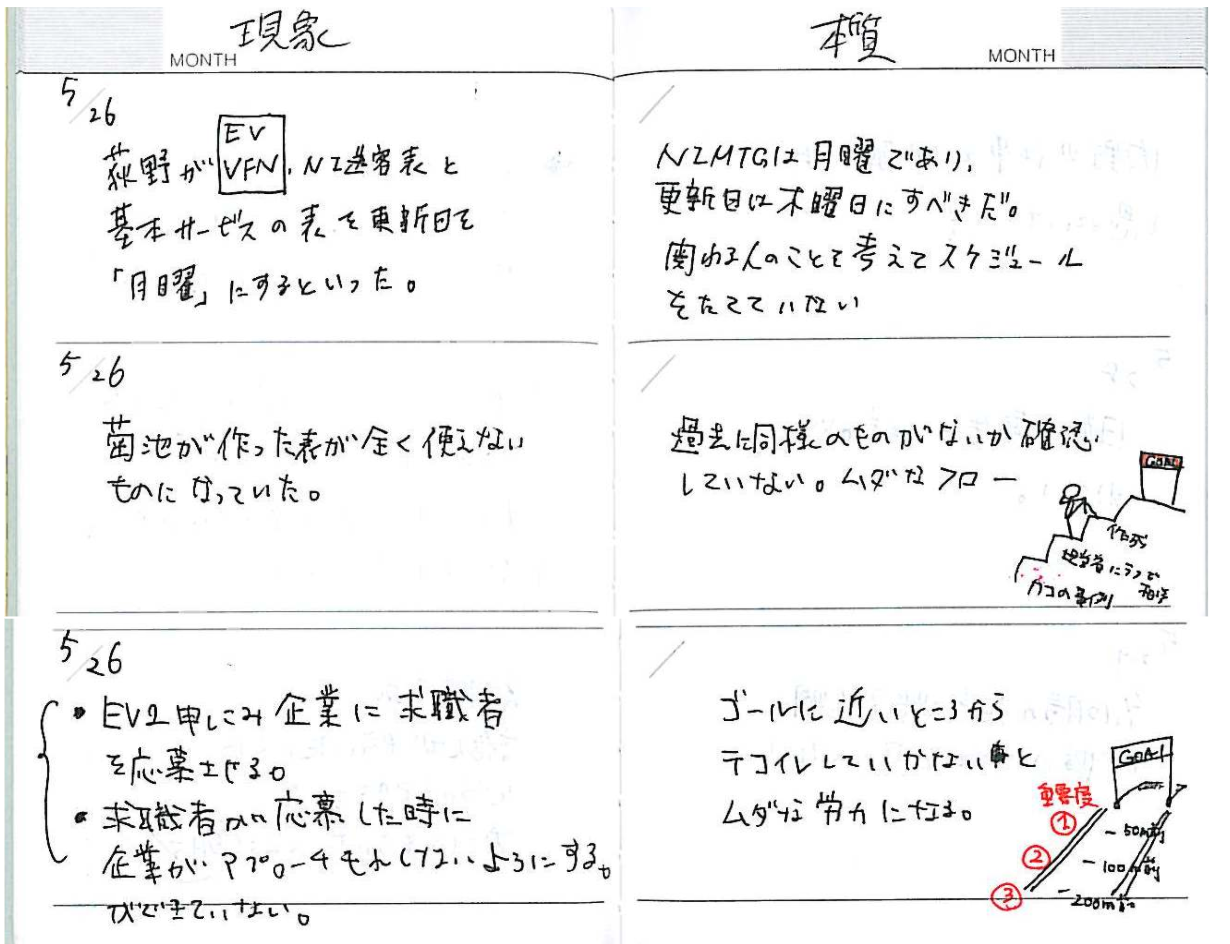 現象
MONTH
本質
MONTH
5/26
荻野が EV VFN、NZ送客表と
基本サービスの表を更新日を
「月曜」にするといった。
NZMTGは月曜であり、
更新日は木曜日にすべきだ。
関わる人のことを考えてスケジュール
をたてていない
5/26
菊池が作った表が全く使えない
ものになっていた。
過去に同様のものがないか確認
していない。ムダなフロー
GOAL
作成
担当者にラフで
カコの事例
5/26
・EV申しこみ企業に求職者
を応募させる。
・求職者が応募した時に
企業がアプローチもれしないようにする。
ができていない。
ゴールに近いところから
テコイレしていかないと
ムダな労力になる。
GOAL
重要度
①
- 50m前
②
- 100m前
③
- 200m前